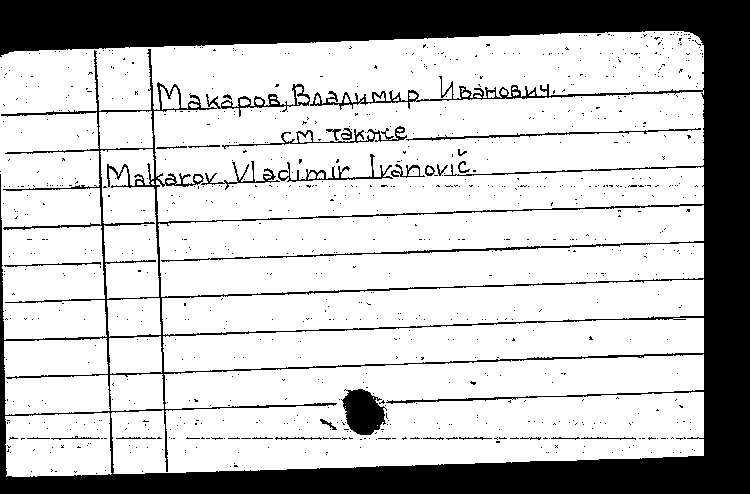 Макаров, Владимир Иванович.
см. также
Makarov, Vladimir Ivanovič.